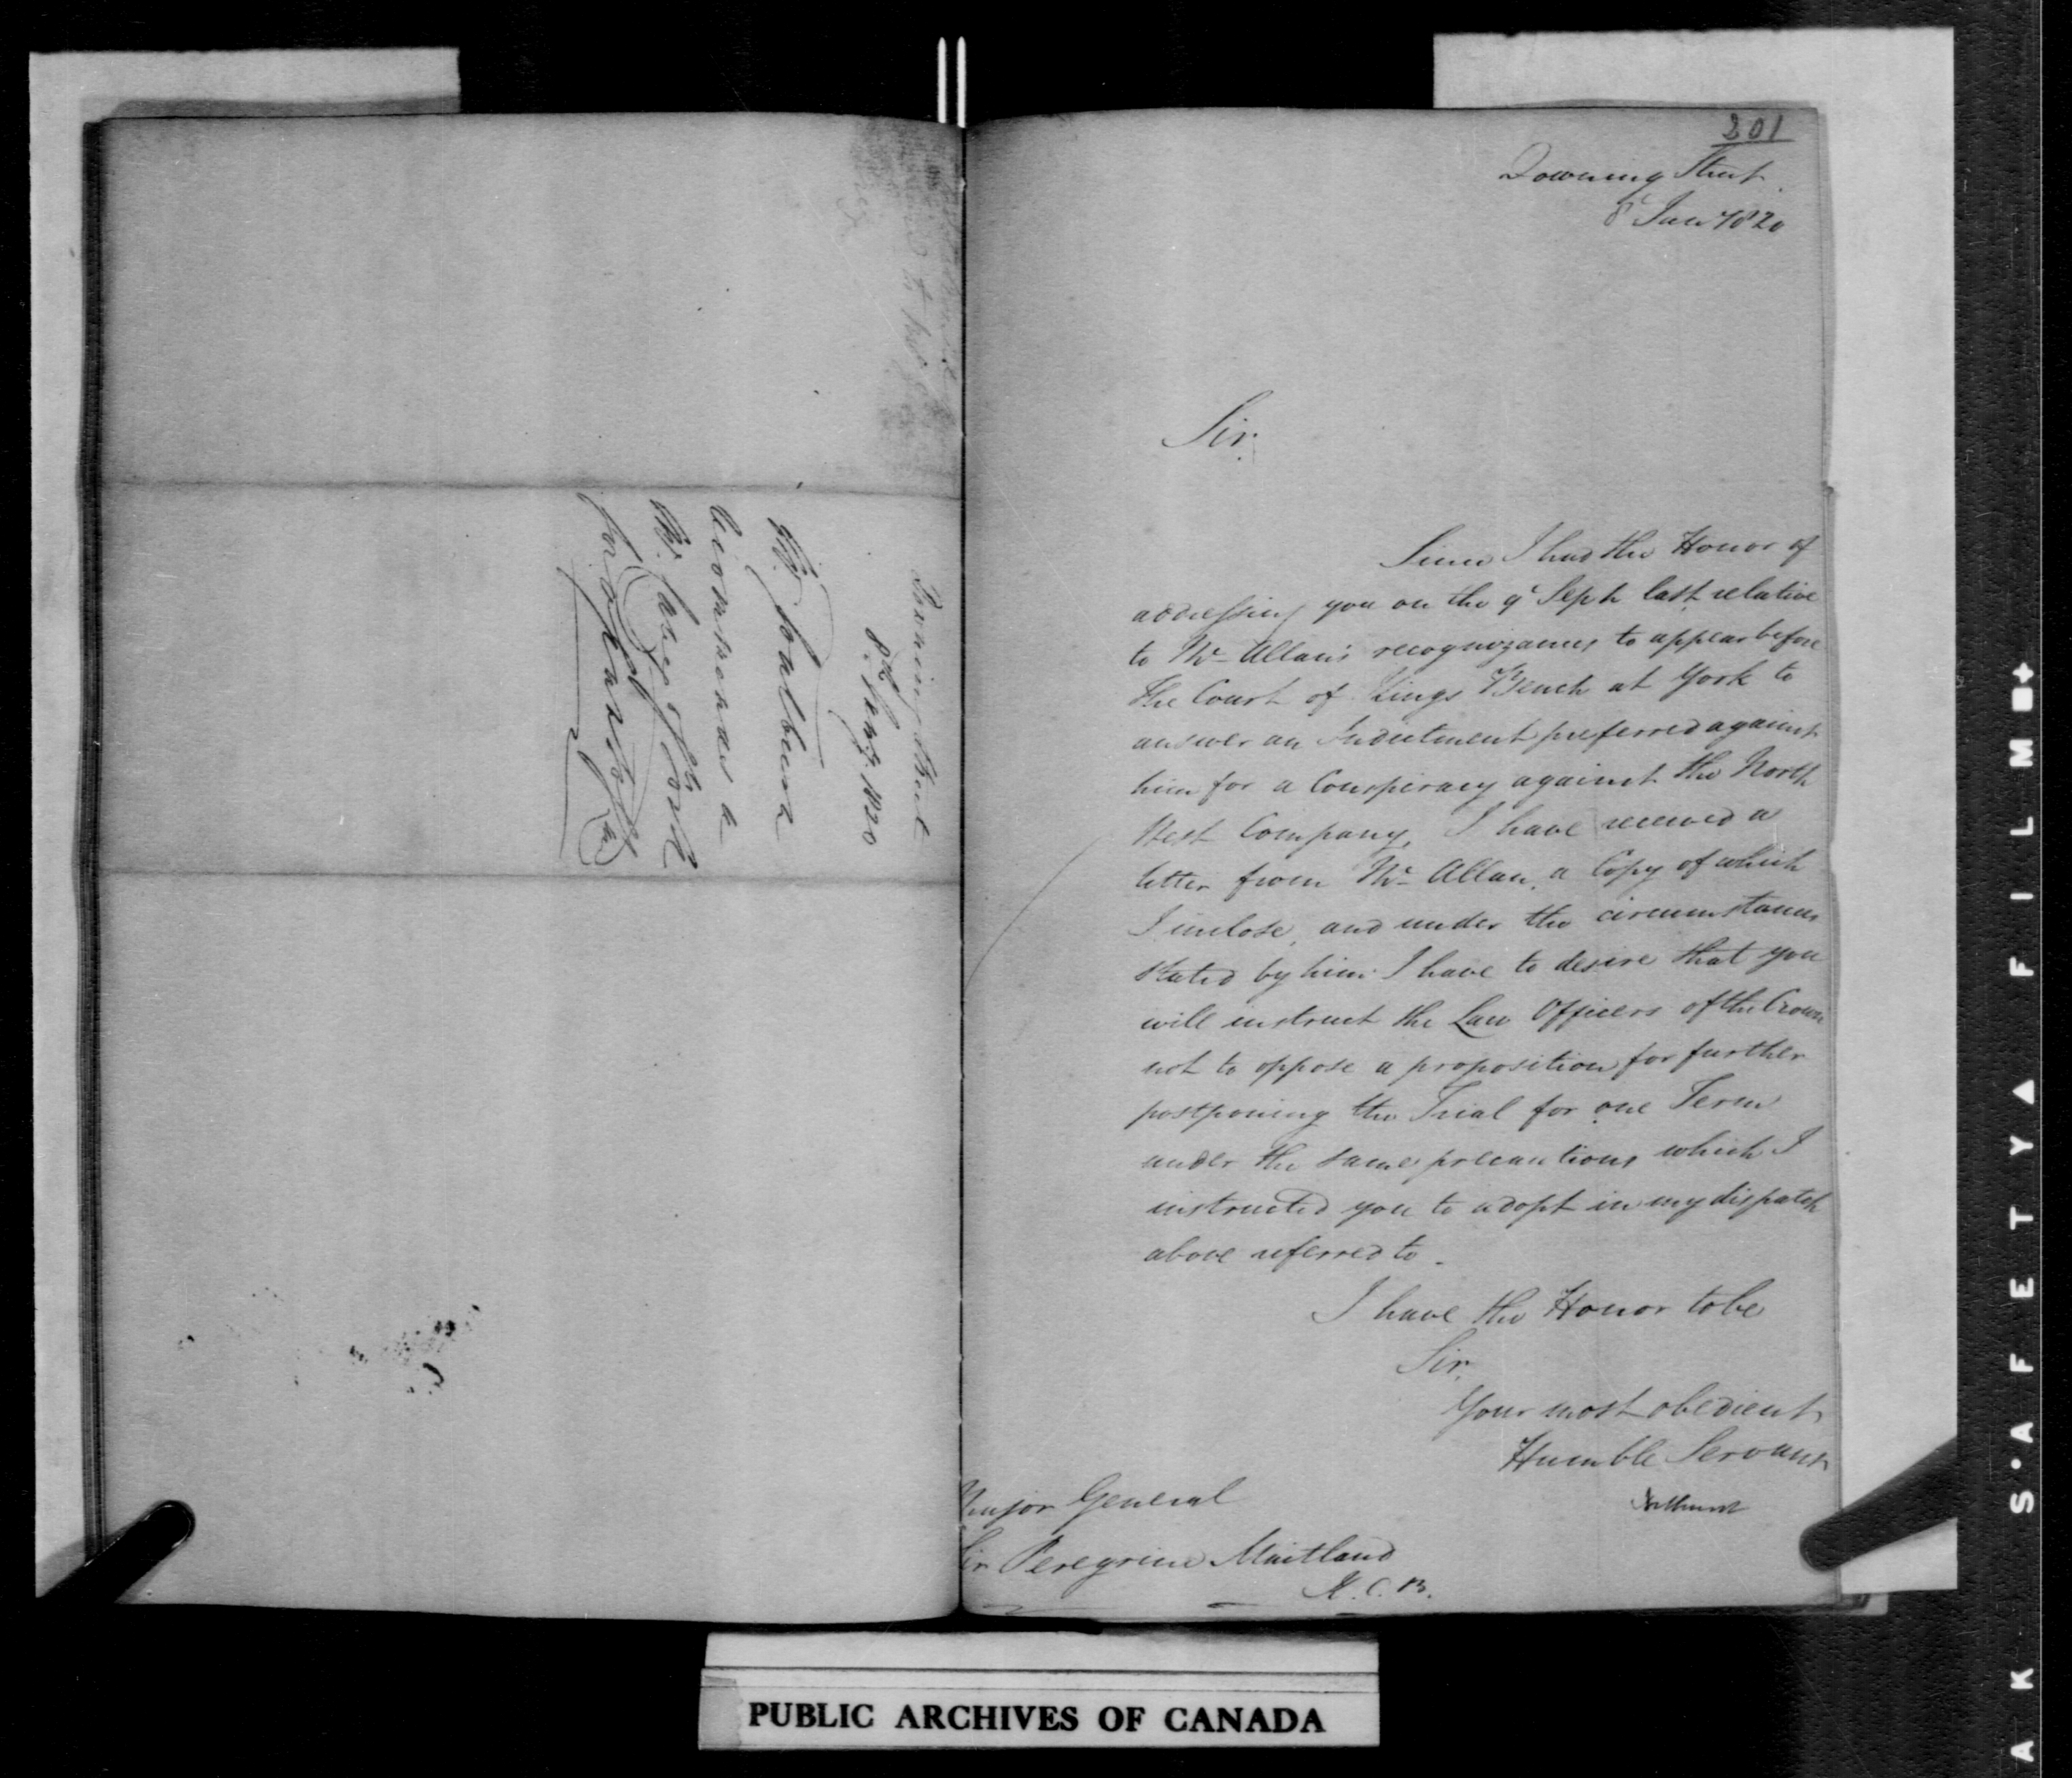 Downing Street
8th Jany 1820
Mr Goulburn
201
Downing Street
8 Jany 1820
Sir.
Since I had the Honor of
addressing you on the 9th Septr last relative
to Mr Allan's recognizances to appear before
the Court of Kings Bench at York to
answer an Indictment preferred against
him for a Conspiracy against the North
West Company, I have received a
letter from Mr Allan, a Copy of which
I inclose, and under the circumstances
stated by him I have to desire that you
will instruct the Law Officers of the Crown
not to oppose a proposition for further
postponing the Trial for one Term
under the same precautions which I
instructed you to adopt in my dispatch
above referred to.
I have the Honor to be
Sir,
Your most obedient
Humble Servant
Bathurst
Major General
Sir Peregrine Maitland
K.C.B.
PUBLIC ARCHIVES OF CANADA
A K S·A F E T Y ▲ F I L M ■✦